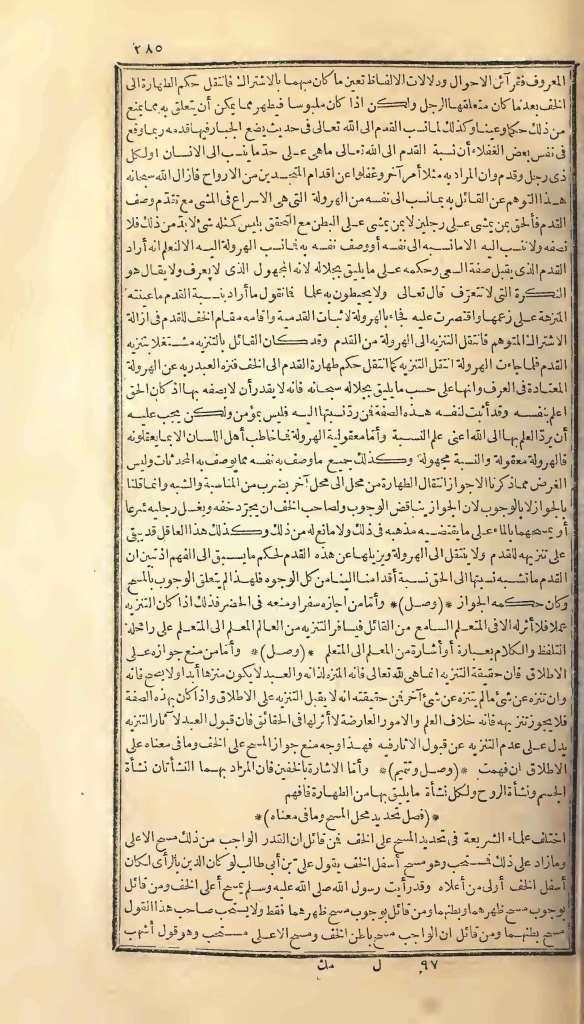 ٢٨٥
المعروف فقرآئن الاحوال ودلالات الالفاظ تعين ما كان مبهما بالاشتراك فانتقل حكم الطهارة الى
الخف بعد ما كان متعلقها الرجل ولكن اذا كان ملبوسا فيطهر مما يمكن أن يتعلق به مما يمنع
من ذلك حكما وعينا وكذلك لما نسب القدم الى الله تعالى فى حديث يضع الجبار فيها قدمه ربما وقع
فى نفس بعض العقلاء أن نسبة القدم الى الله تعالى ما هى على حد ما ينسب الى الانسان أو لكل
ذى رجل وقدم وان المراد به مثلا أمر آخر وغفلوا عن اقدام المتجسدين من الارواح فازال الله سبحانه
هذا التوهم عن القائل به بما نسب الى نفسه من الهرولة التى هى الاسراع فى المشى مع تقدم وصف
القدم فألحق بمن يمشى على رجلين لا بمن يمشى على البطن مع التحقق بليس كمثله شئ لا بد من ذلك فلا
نصفه ولا ننسب اليه الا ما نسبه الى نفسه أو وصف نفسه به فما نسب الهرولة اليه الا لنعلم انه أراد
القدم الذى يقبل صفة السعى وحكمه على ما يليق بجلاله لانه المجهول الذى لا يعرف ولا يقال هو
النكرة التى لا تتعرّف قال تعالى ولا يحيطون به علما فانقول ما أراد بنسبة القدم ما عينته
المنزهة على زعمها واقتصرت عليه فجاء بالهرولة لاثبات القدمية واقامه مقام الخف للقدم فى ازالة
الاشتراك المتوهم فانتقل التنزيه الى الهرولة من القدم وقد كان القائل بالتنزيه مشتغلا بتنزيه
القدم فلما جاءت الهرولة انتقل التنزيه كما انتقل حكم طهارة القدم الى الخف فنزه العبد ربه عن الهرولة
المعتادة فى العرف وانها على حسب ما يليق بجلاله سبحانه فانه لا يقدر أن لا يصفه بها اذ كان الحق
اعلم بنفسه وقد أثبت لنفسه هذه الصفة فمن ردّ نسبتها اليه فليس بمؤمن ولكن يجب عليه
أن يردّ العلم بها الى الله أعنى علم النسبة وأمّا معقولية الهرولة فما خاطب أهل اللسان الا بما يعقلونه
فالهرولة معقولة والنسبة مجهولة وكذلك جميع ما وصف به نفسه مما يوصف به المحدثات وليس
الغرض مما ذكرنا الا جواز انتقال الطهارة من محل الى محل آخر بضرب من المناسبة والشبه وانما قلنا
بالجواز لا بالوجوب لان الجواز يناقض الوجوب ولصاحب الخف ان يجرّد خفه ويغسل رجليه شرعا
أو يمسحهما بالماء على ما يقتضيه مذهبه فى ذلك ولا مانع له من ذلك وكذلك هذا العاقل قد يبقى
على تنزيهه للقدم ولا ينتقل الى الهرولة ويزيلها عن هذه القدم لحكم ما يسبق الى الفهم اذ تبين ان
القدم ما تشبه نسبتها الى الحق نسبة أقدامنا الينا من كل الوجوه فلهذا لم يتعلق الوجوب بالمسح
وكان حكمه الجواز *(وصل)* وأمّا من اجازه سفرا ومنعه فى الحضر فذلك اذا كان التنزيه
عملا فلا أثر له الا فى المتعلم السامع من القائل فيسافر التنزيه من العالم المعلم الى المتعلم على راحلة
التلفظ والكلام بعبارة أو اشارة من المعلم الى المتعلم *(وصل)* وأمّا من منع جوازه على
الاطلاق فان حقيقة التنزيه انما هى لله تعالى فانه المنزه لذاته والعبد لا يكون منزها أبدا ولا يصح فانه
وان تنزه عن شئ ما لم يتنزه عن شئ آخر فمن حقيقته انه لا يقبل التنزيه على الاطلاق واذا كان بهذه الصفة
فلا يجوز تنزيهه فانه خلاف العلم والامور العارضة لا أثر لها فى الحقائق فان قبول العبد لآثار التنزيه
يدل على عدم التنزيه عن قبول الاثر فيه فهذا وجه منع جواز المسح على الخف وما فى معناه على
الاطلاق ان فهمت *(وصل وتتميم)* وأمّا الاشارة بالخفين فان المراد بهما النشأتان نشأة
الجسم ونشأة الروح ولكل نشأة ما يليق بها من الطهارة فافهم
*(فصل تحديد محل المسح وما فى معناه)*
اختلف علماء الشريعة فى تحديد المسح على الخف فمن قائل ان القدر الواجب من ذلك مسح الاعلى
وما زاد على ذلك فستحب وهو مسح أسفل الخف يقول علىّ بن أبى طالب لو كان الدين بالرأى لكان
أسفل الخف أولى من أعلاه وقد رأيت رسول الله صلى الله عليه وسلم يمسح أعلى الخف ومن قائل
بوجوب مسح ظهرهما وبطنهما ومن قائل بوجوب مسح ظهرهما فقط ولا يستحب صاحب هذا القول
مسح بطنهما ومن قائل ان الواجب مسح باطن الخف ومسح الاعلى مستحب وهو قول أشهب
٩٧ ل مك